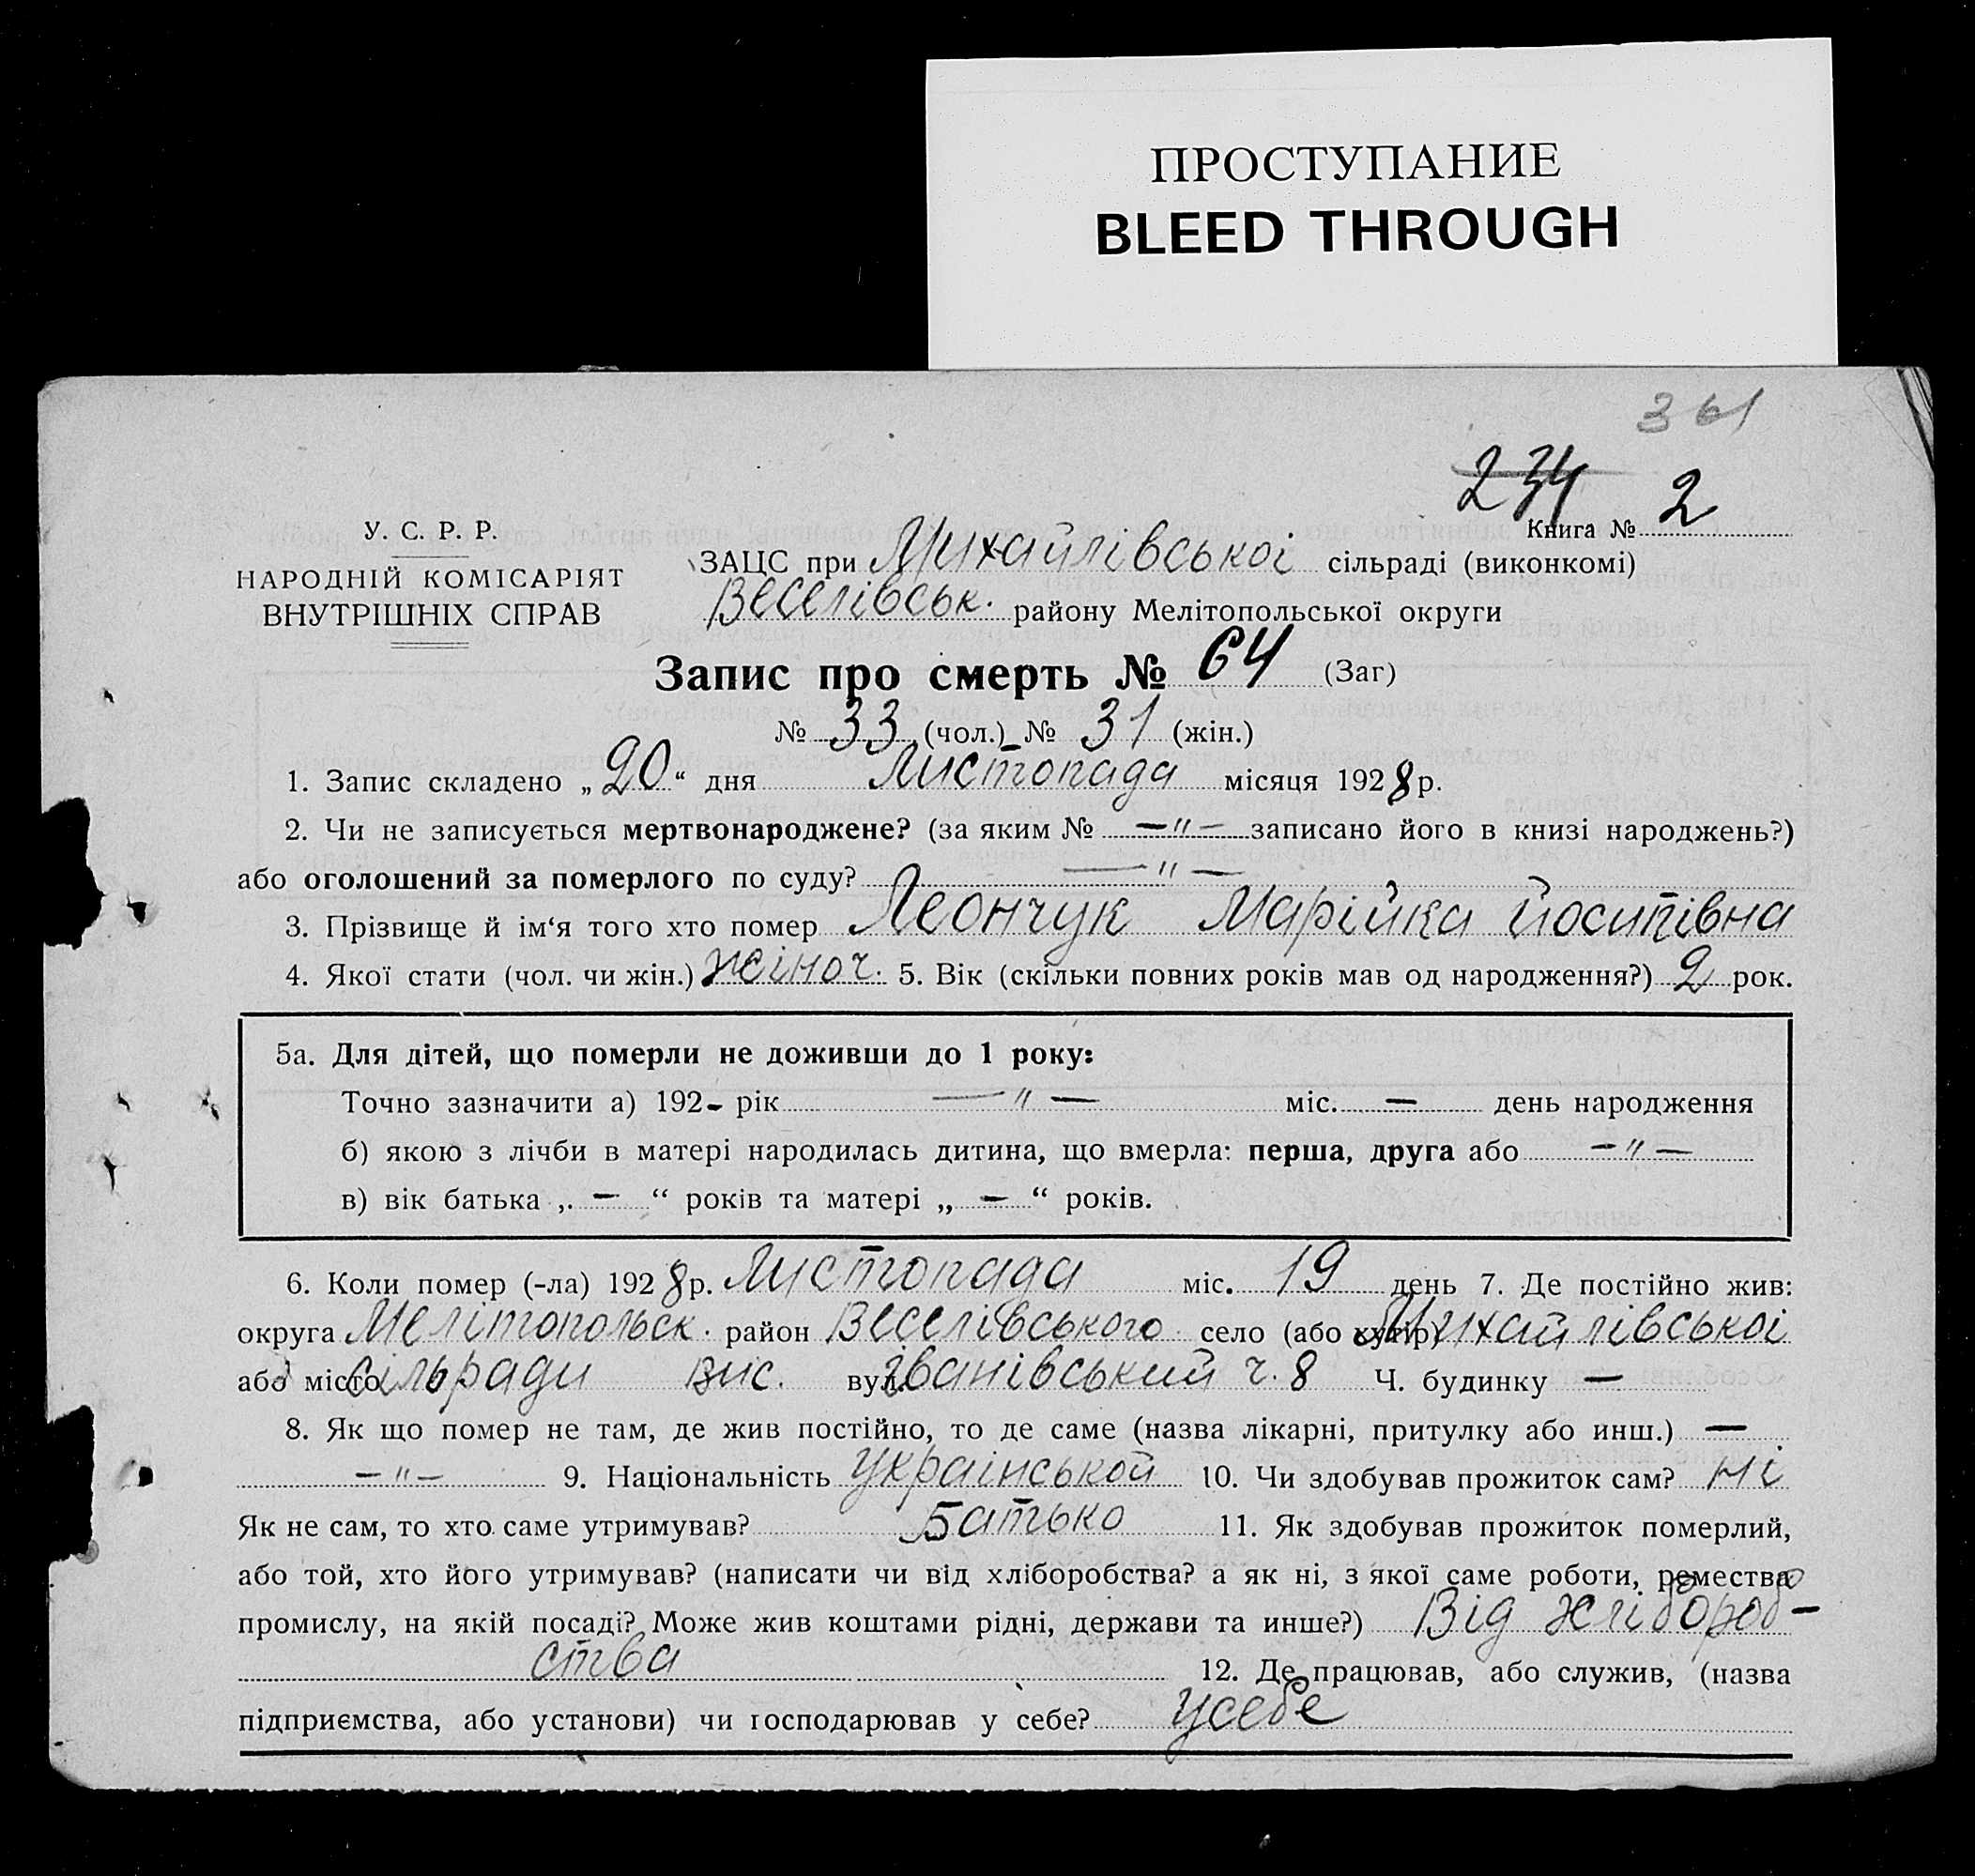 ПРОСТУПАНИЕ
BLEED THROUGH
361
234
Книга № 2
У. С. Р. Р.
НАРОДНІЙ КОМІСАРІЯТ
ВНУТРІШНІХ СПРАВ
ЗАЦС при Михайлівської сільраді (виконкомі)
Веселівськ. району Мелітопольської округи
Запис про смерть № 64 (Заг)
№ 33 (чол.) № 31 (жін.)
1. Запис складено „20“ дня Листопада місяця 1928 р.
2. Чи не записується мертвонароджене? (за яким № —"— записано його в книзі народжень?)
або оголошений за померлого по суду? —"—
3. Прізвище й ім‘я того хто помер Леончук Марійка Йосипівна
4. Якої стати (чол. чи жін.) жіноч. 5. Вік (скільки повних років мав од народження?) 2 рок.
5а. Для дітей, що померли не доживши до 1 року:
Точно зазначити а) 192- рік —"— міс. — день народження
б) якою з лічби в матері народилась дитина, що вмерла: перша, друга або —"—
в) вік батька „ — “ років та матері „ — “ років.
6. Коли помер (-ла) 1928 р. Листопада міс. 19 день 7. Де постійно жив:
округа Мелітопольськ. район Веселівського село (або хутір) Михайлівської
або місто сільради вис. вул. Іванівський ч. 8 Ч. будинку —
8. Як що помер не там, де жив постійно, то де саме (назва лікарні, притулку або инш.) —
—"— 9. Національність Української 10. Чи здобував прожиток сам? Ні
Як не сам, то хто саме утримував? Батько 11. Як здобував прожиток померлий,
або той, хто його утримував? (написати чи від хліборобства? а як ні, з якої саме роботи, ремества
промислу, на якій посаді? Може жив коштами рідні, держави та инше?) Від хлібороб-
ства 12. Де працював, або служив, (назва
підприємства, або установи) чи господарював у себе? усебе